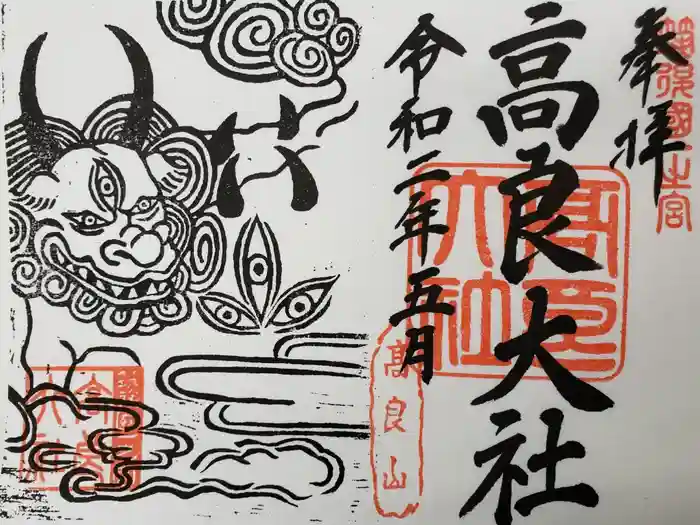 奉拝
筑後國一之宮
高良大社
高良大社
令和二年五月
高良山
六
高良大社